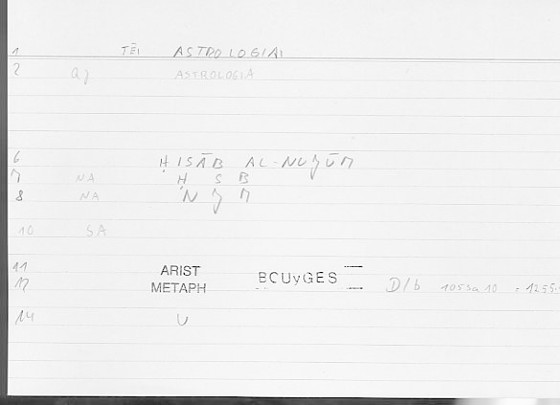 1 TĒI ASTROLOGIAI
2 aj ASTROLOGIA
6 ḤISĀB AL-NUǧŪM
7 NA Ḥ S B
8 NA N ǧ M
10 SA
11 ARIST
12 METAPH BCUyGES D/b 1053a10 =
14 U